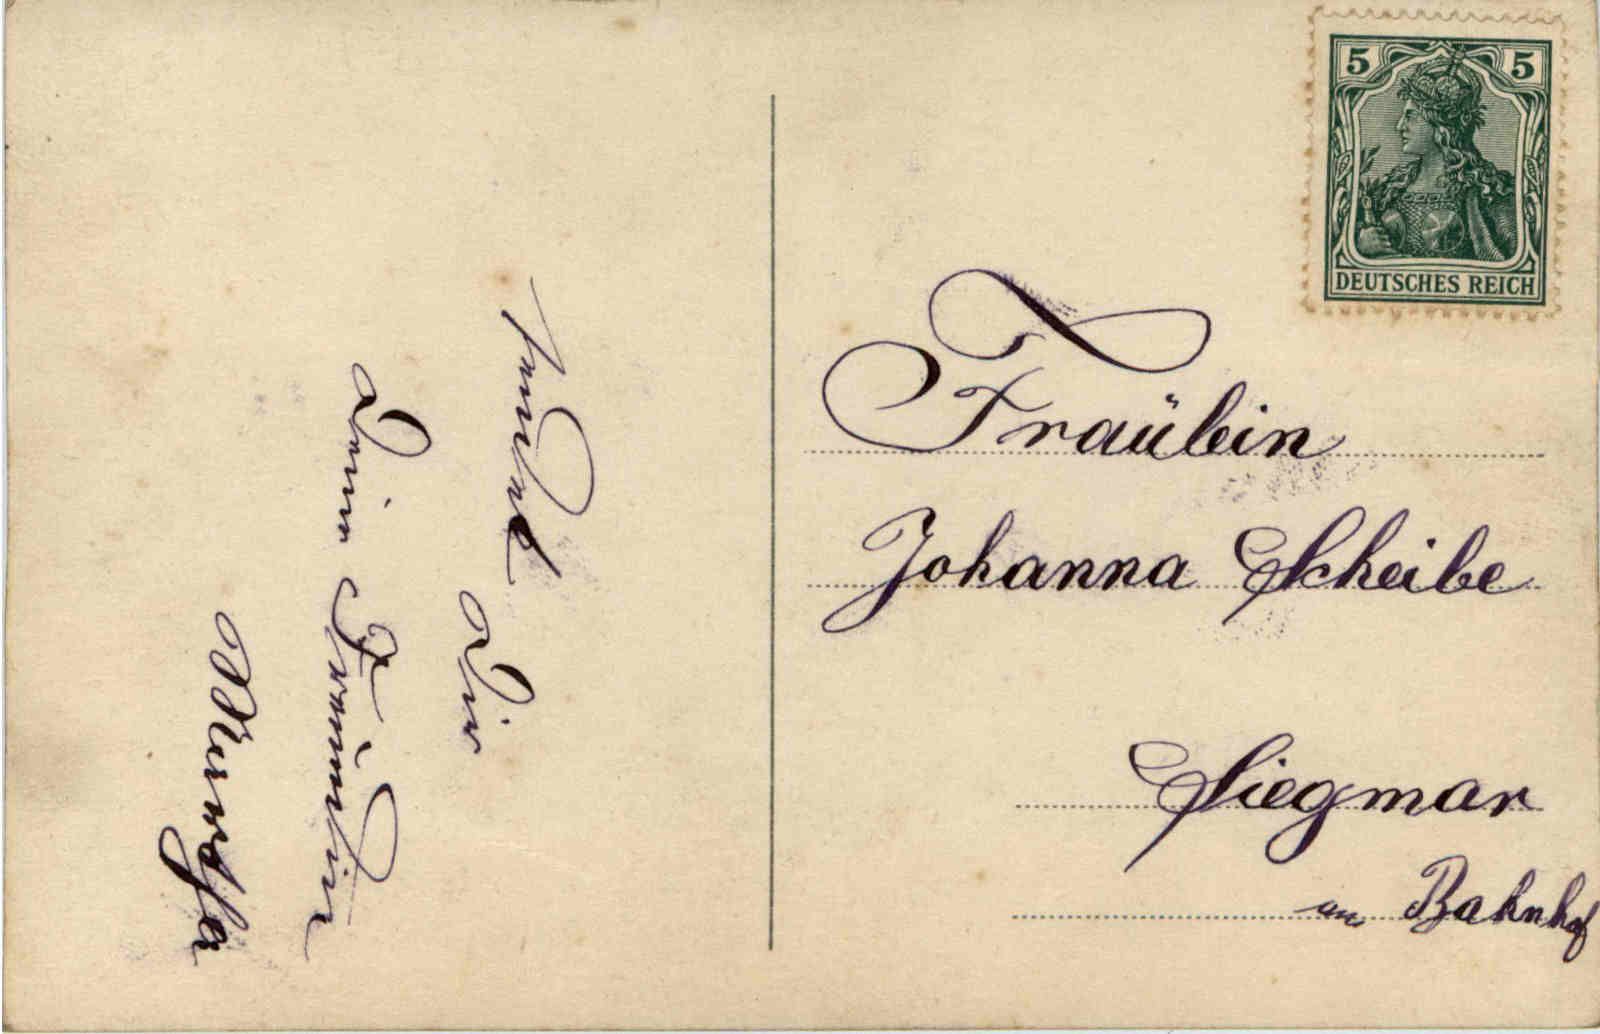 5 5
DEUTSCHES REICH
sendet
Dir
Deine Freundin
Martha
Fraülein
Johanna Scheibe
Siegmar
am Bahnhof